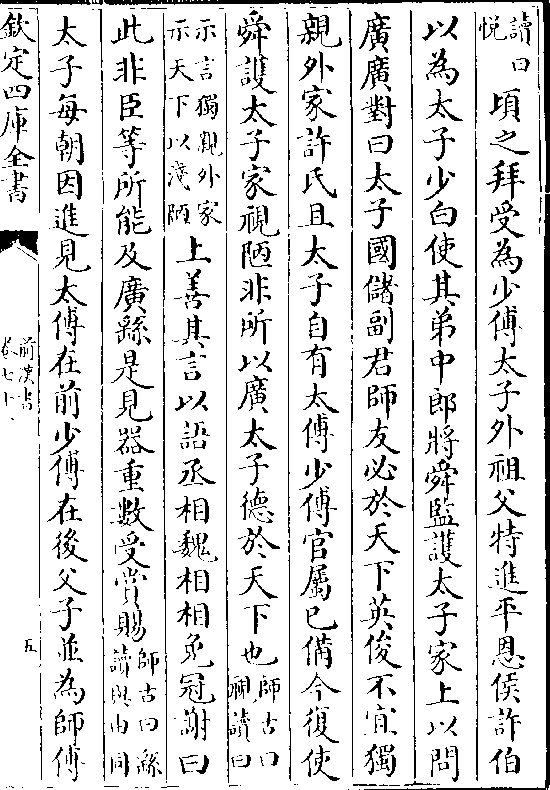 讀曰悅頃之拜受為少傅太子外祖父特進平恩侯許伯
以為太子少白使其弟中郎將舜監護太子家上以問
廣廣對曰太子國儲副君師友必於天下英俊不宜獨
親外家許氏且太子自有太傅少傅官屬已備今復使
舜護太子家視陋非所以廣太子德於天下也師古曰視讀曰
示言獨親外家示天下以淺陋上善其言以語丞相魏相相免冠謝曰
此非臣等所能及廣繇是見器重數受賞賜師古曰繇讀與由同
太子每朝因進見太傅在前少傅在後父子並為師傅
欽定四庫全書
前漢書
卷七十一
五